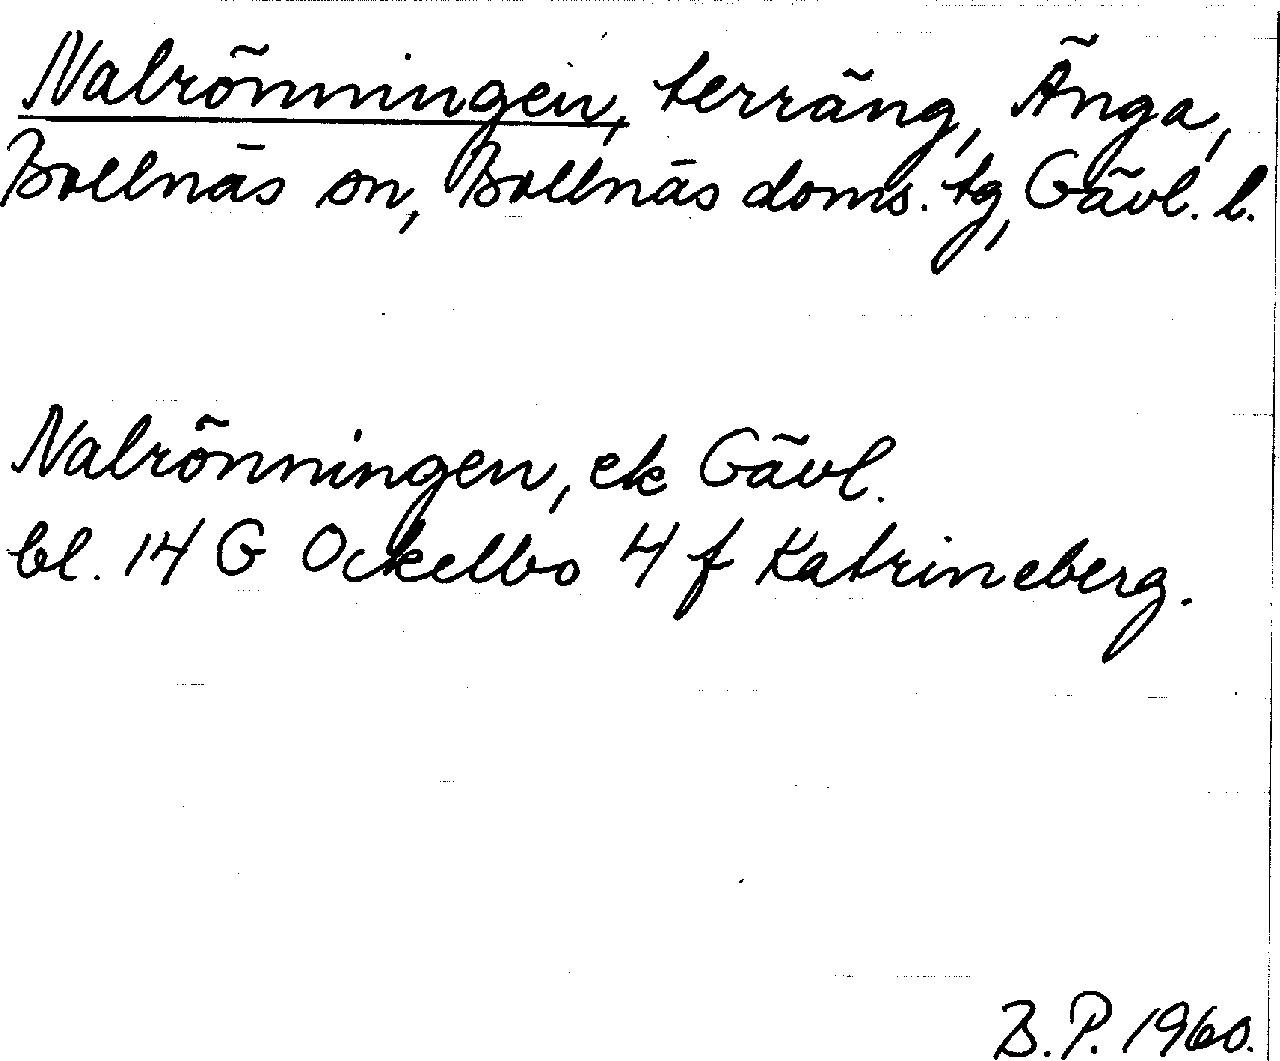 Nalrönningen, terräng, Änga,
Bollnäs sn, Bollnäs doms. tg, Gävl. l.
Nalrönningen, ek Gävl.
bl. 14 G Ockelbo 4 f Katrineberg.
B.P. 1960.